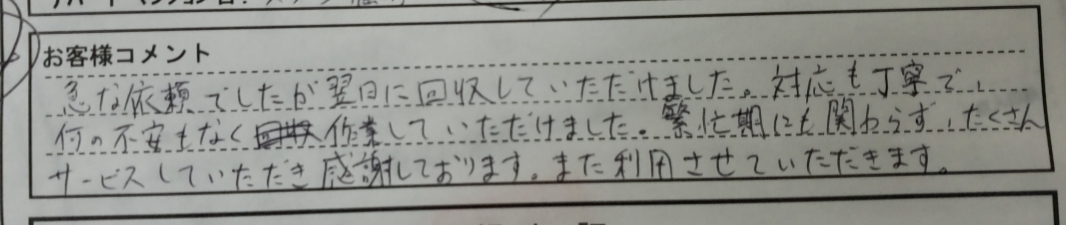 お客様コメント
急な依頼でしたが翌日に回収していただけました。対応も丁寧で、
何の不安もなく作業していただけました。繁忙期にも関わらず、たくさん
サービスしていただき感謝しております。また利用させていただきます。